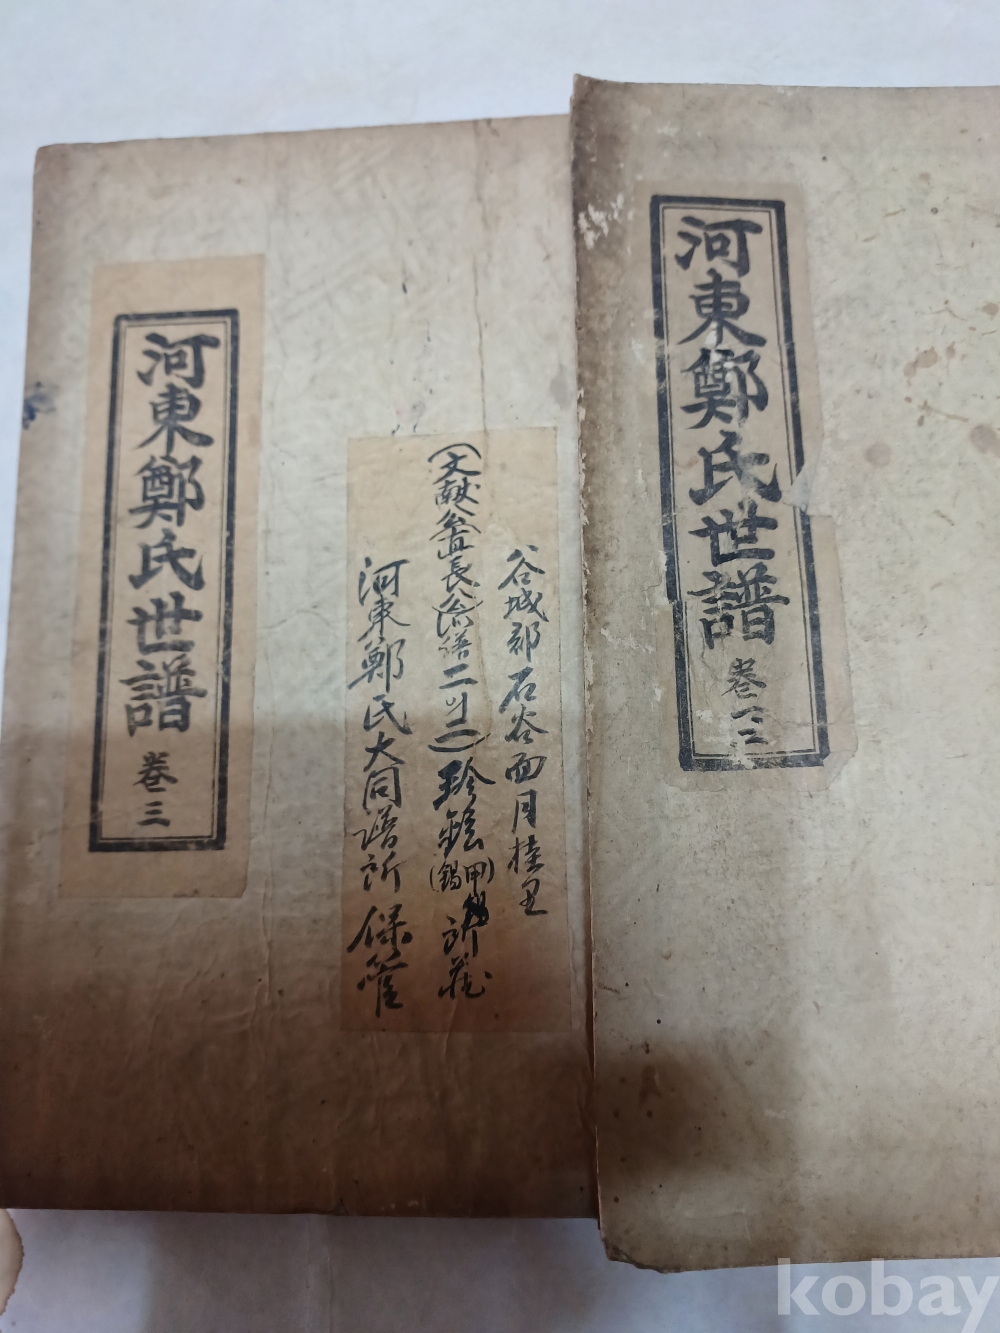 河東鄭氏世譜 卷三
谷城郡石谷面月桂里
(文献公直長公派譜二의二) 珍鉉 (錫甲) 所蔵
河東鄭氏大同譜所 保管
河東鄭氏世譜 卷三
kobay